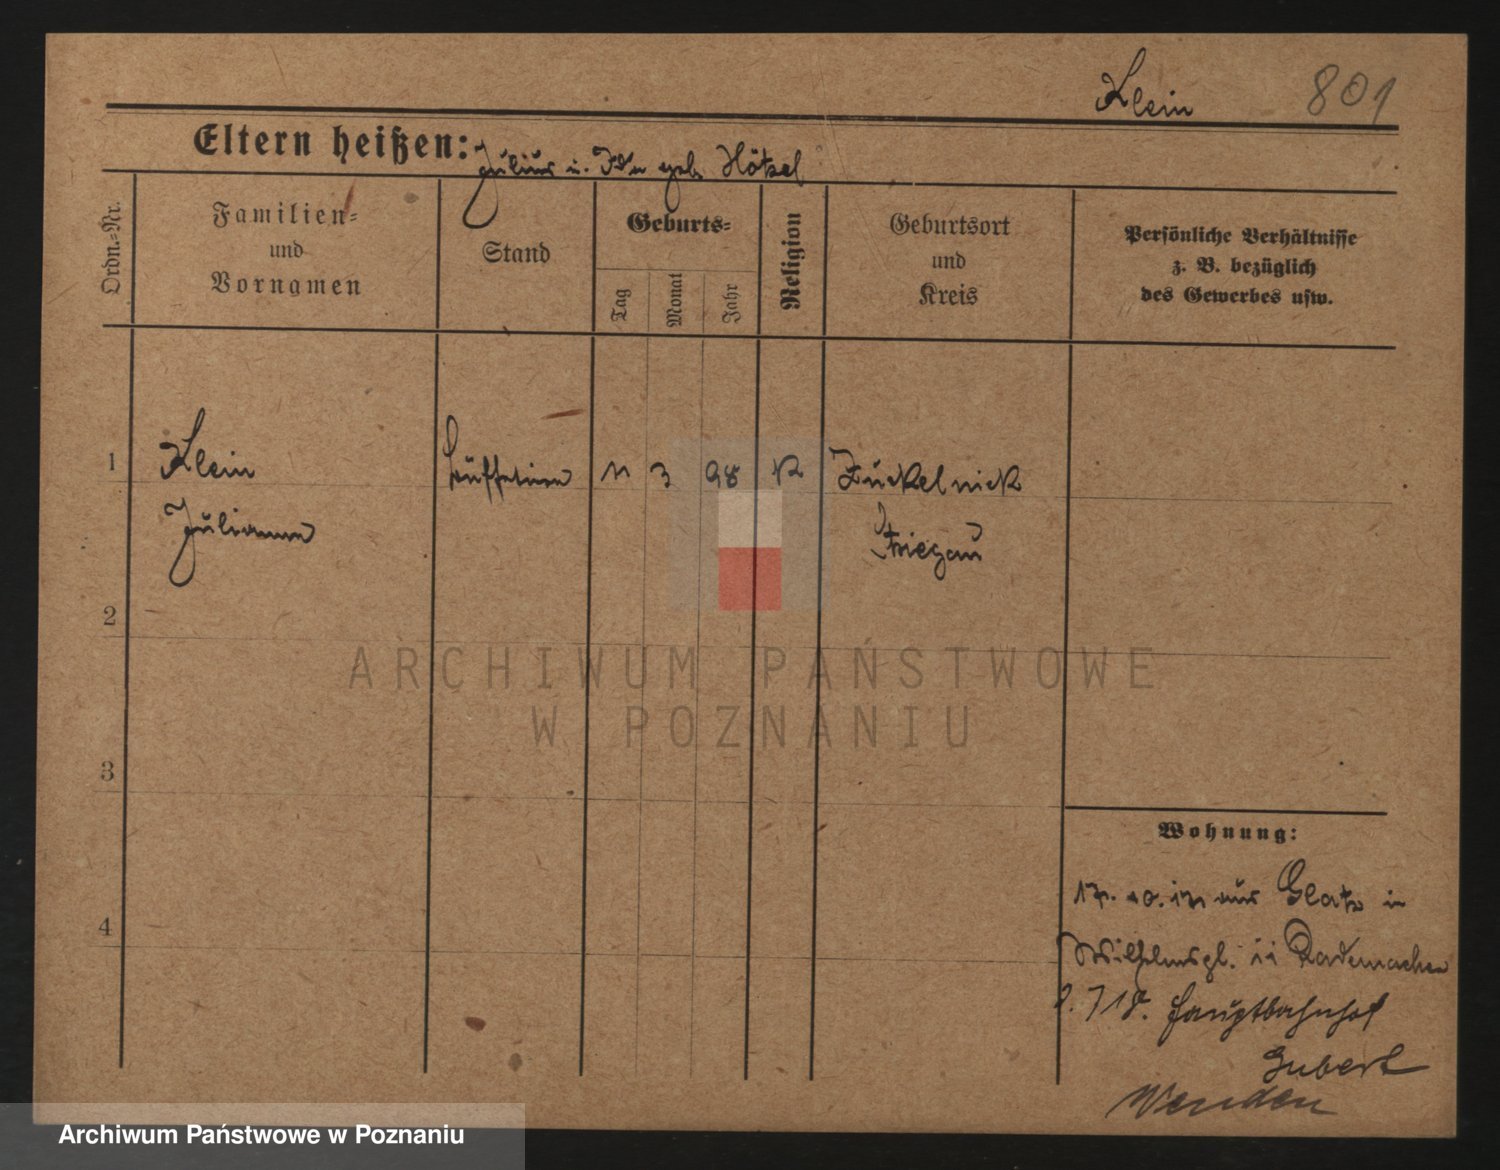 Klein 801
Eltern heißen: Julius u. Ida geb. Hötzel
Ordn.-Nr.
Familien-
und
Vornamen
Stand
Geburts-
Tag
Monat
Jahr
Religion
Geburtsort
und
Kreis
Persönliche Verhältnisse
z. B. bezüglich
des Gewerbes usw.
1 Klein 11 3 98 K
Julianna Striegau
2
3
4
ARCHIWUM PAŃSTWOWE
W POZNANIU
Wohnung:
17. 10. 17 aus Glatz in
Wilhelmspl. 11 Rademacher
Hauptbahnhof
Gubert
Wenden
Archiwum Państwowe w Poznaniu